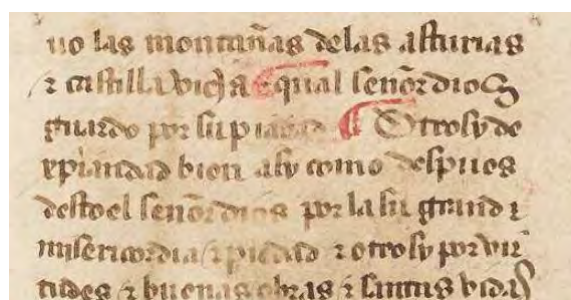 uo las montañas delas asturias
⁊ castilla vieja ⁊ qual señor dios
guardo por su piadad ¶ Otrosy de
xp̃iandad bien asy como despues
desto el señor dios por la su grand ⁊
misericordia ⁊ piedad ⁊ otrosy por vir
tudes ⁊ buenas obras ⁊ santas vidas